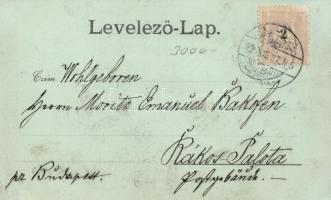 Levelező-Lap.
3000-
Wohlgeboren
Herrn Moritz Emanuel Bakofen
Rákos Palota
pr. Budapest.
Postgebäude. —